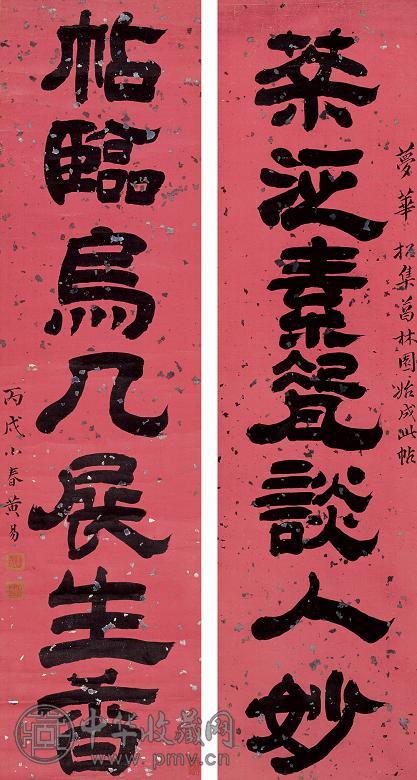 夢華招集葛林園始成此帖
茶泛素瓷談入妙
帖臨烏几展生香
丙戌小春黃易
中华收藏网
www.pmv.cn